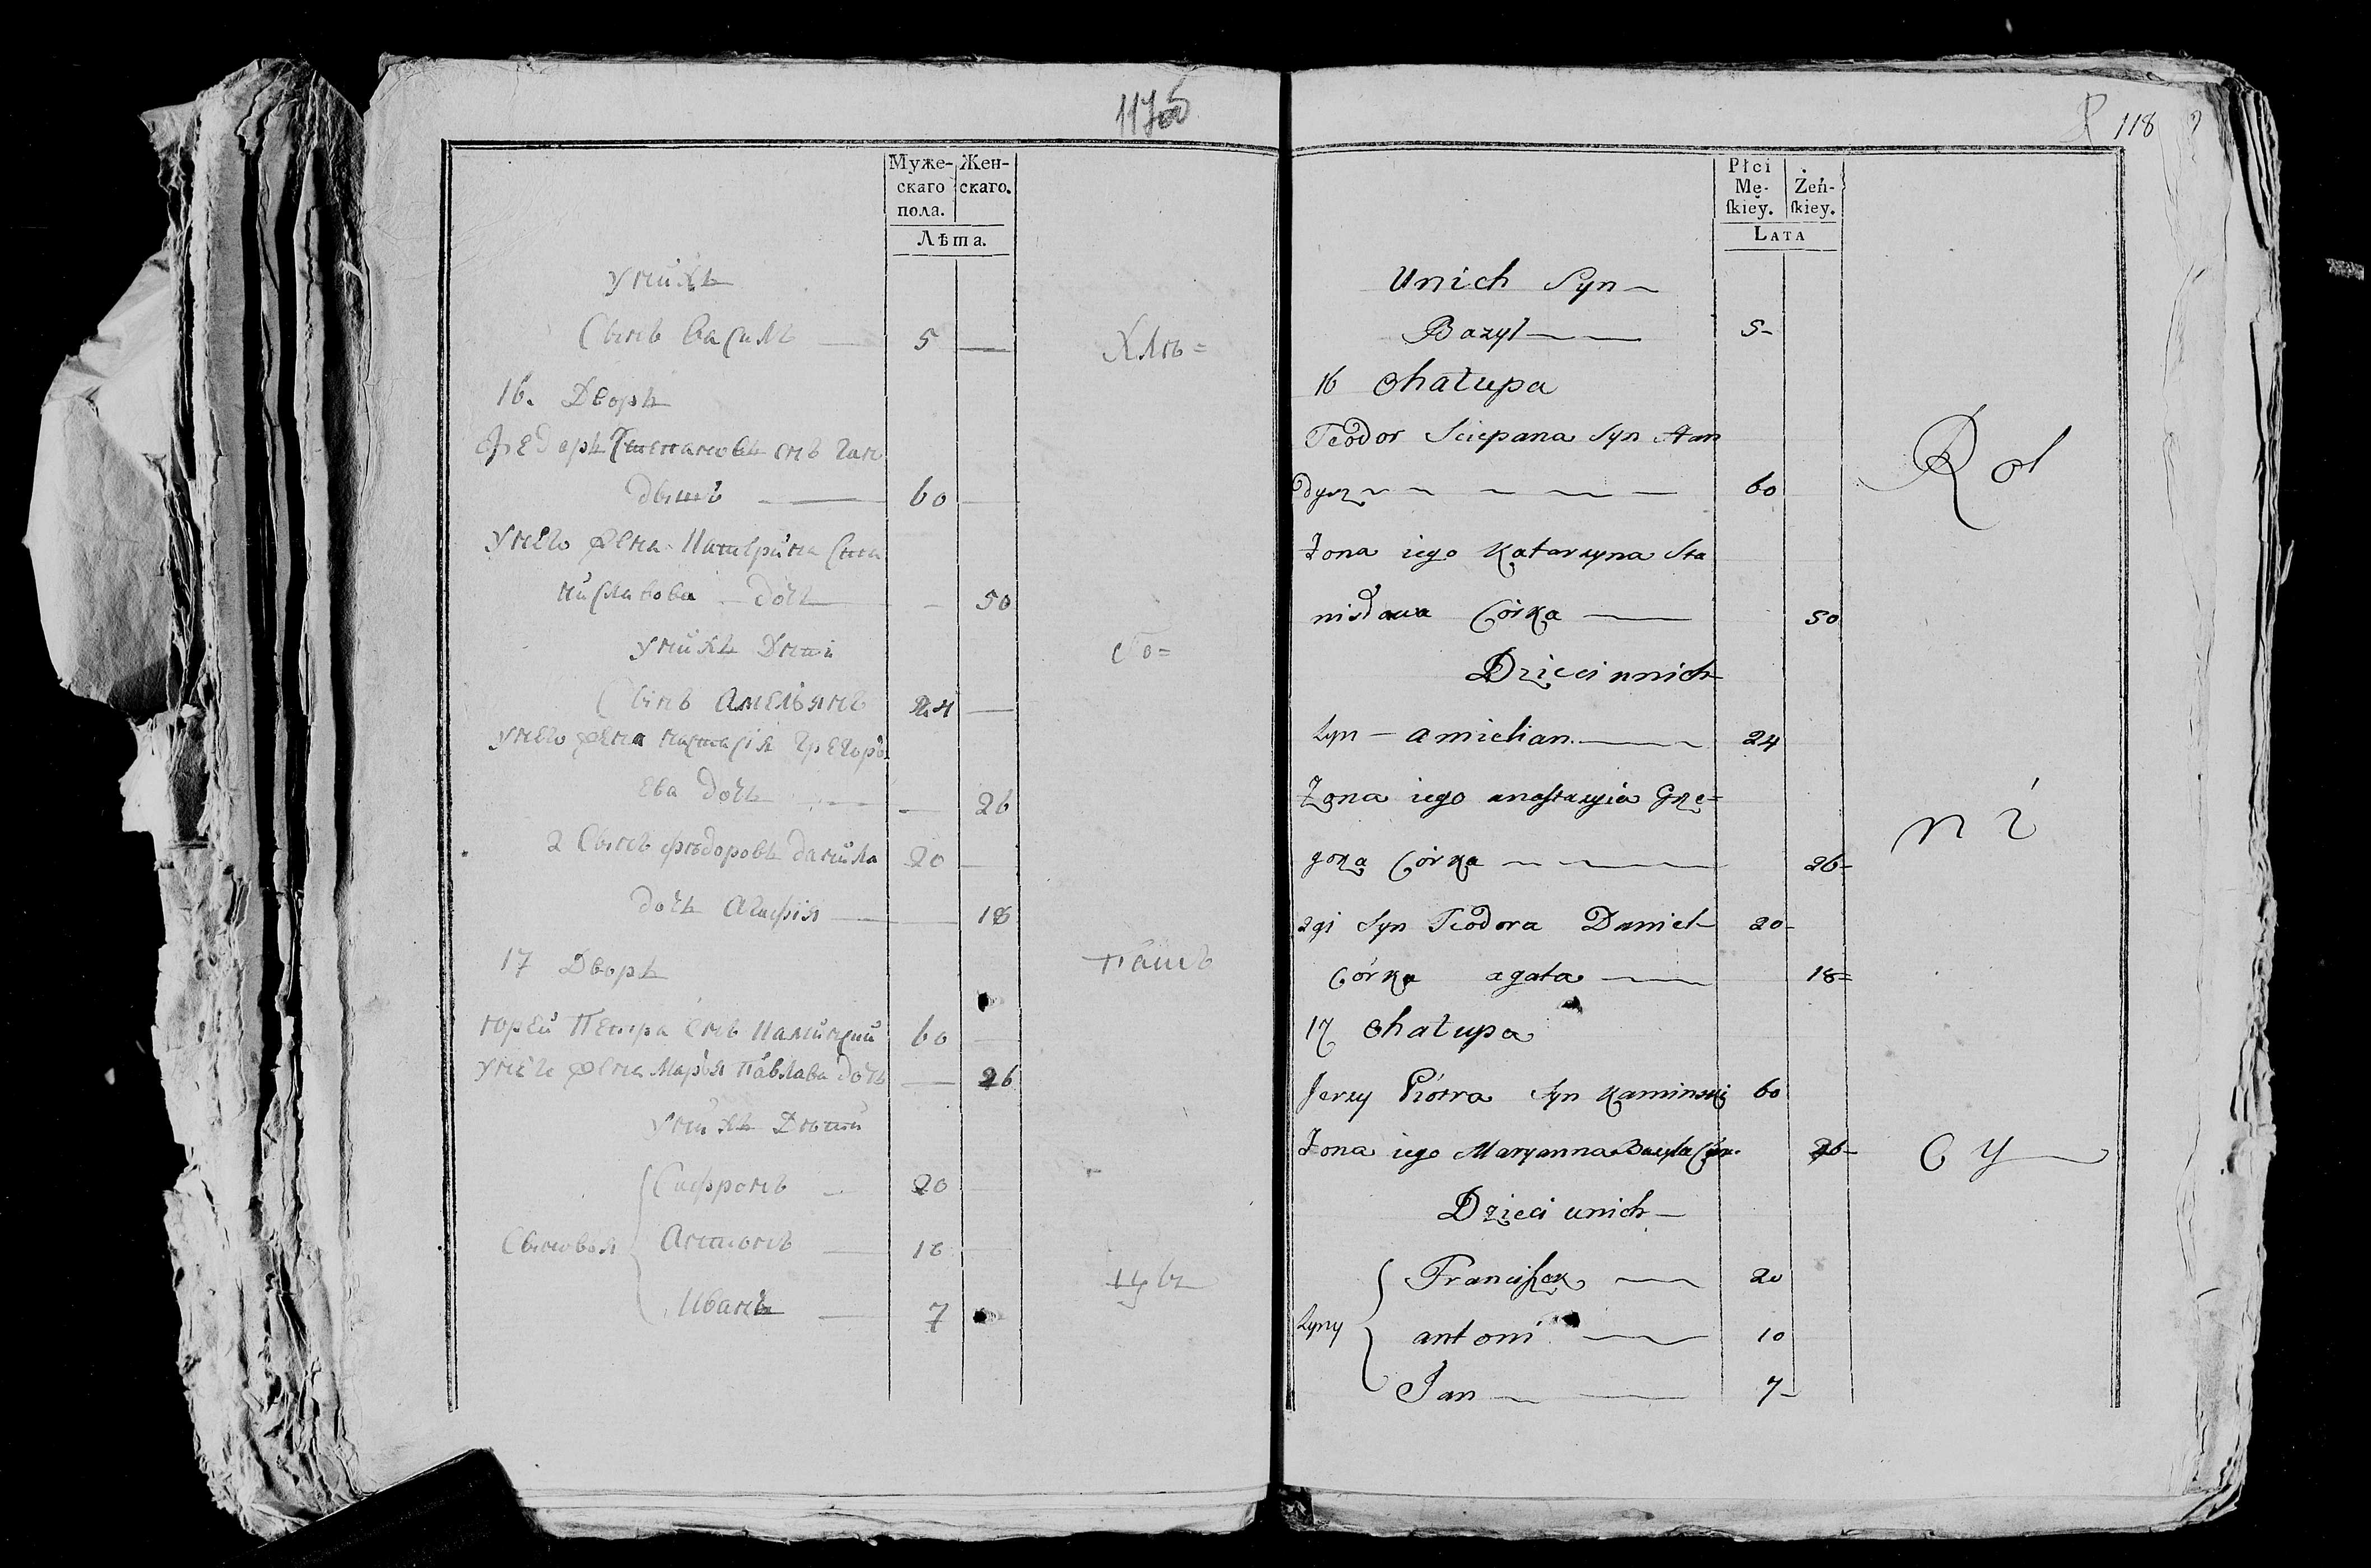 117об
Муже-
скаго
пола.
Жен-
скаго.
Лѣта.
унихъ
Сынъ Василь 5
Хлѣ=
16. Дворъ
Федоръ Степановъ снъ Ган
дышъ 60
унего жена Катерина Ста
ниславова дочь 50
унихъ Дѣти
бо=
Сынъ Амельянъ 24
унего жена настасія Грегорь
ева дочь 26
2 Сынъ фѣдоровъ данила 20
дочь Агафія 18
17 Дворъ
пашъ
Юрей Петра снъ Каминский 60
унего жена Марья павлава дочь 26
унихъ Дѣти
Сыновья
Сафронъ 20
Антонъ 10
Иванъ 7
цывъ
118
Płci
Mę-
skiey.
Żeń-
skiey.
LATA
Unich Syn
Bazyl 5
16 Chałupa
Teodor Sciepana Syn
dysz 60
Żona iego Katarzyna Sta
nisława Córka 50
Dzieci unich
Syn amielian 24
Żona iego anastazyia Grze=
gorza Córka 26
2gi Syn Teodora Daniel 20
Córka agata 18
17 Chałupa
Jerzy Piotra Syn Kaminski 60
Żona iego Maryanna Córk. 26
Dzieci unich
Syny
Franciszek 20
antoni 10
Jan 7
Rol
ni
cy